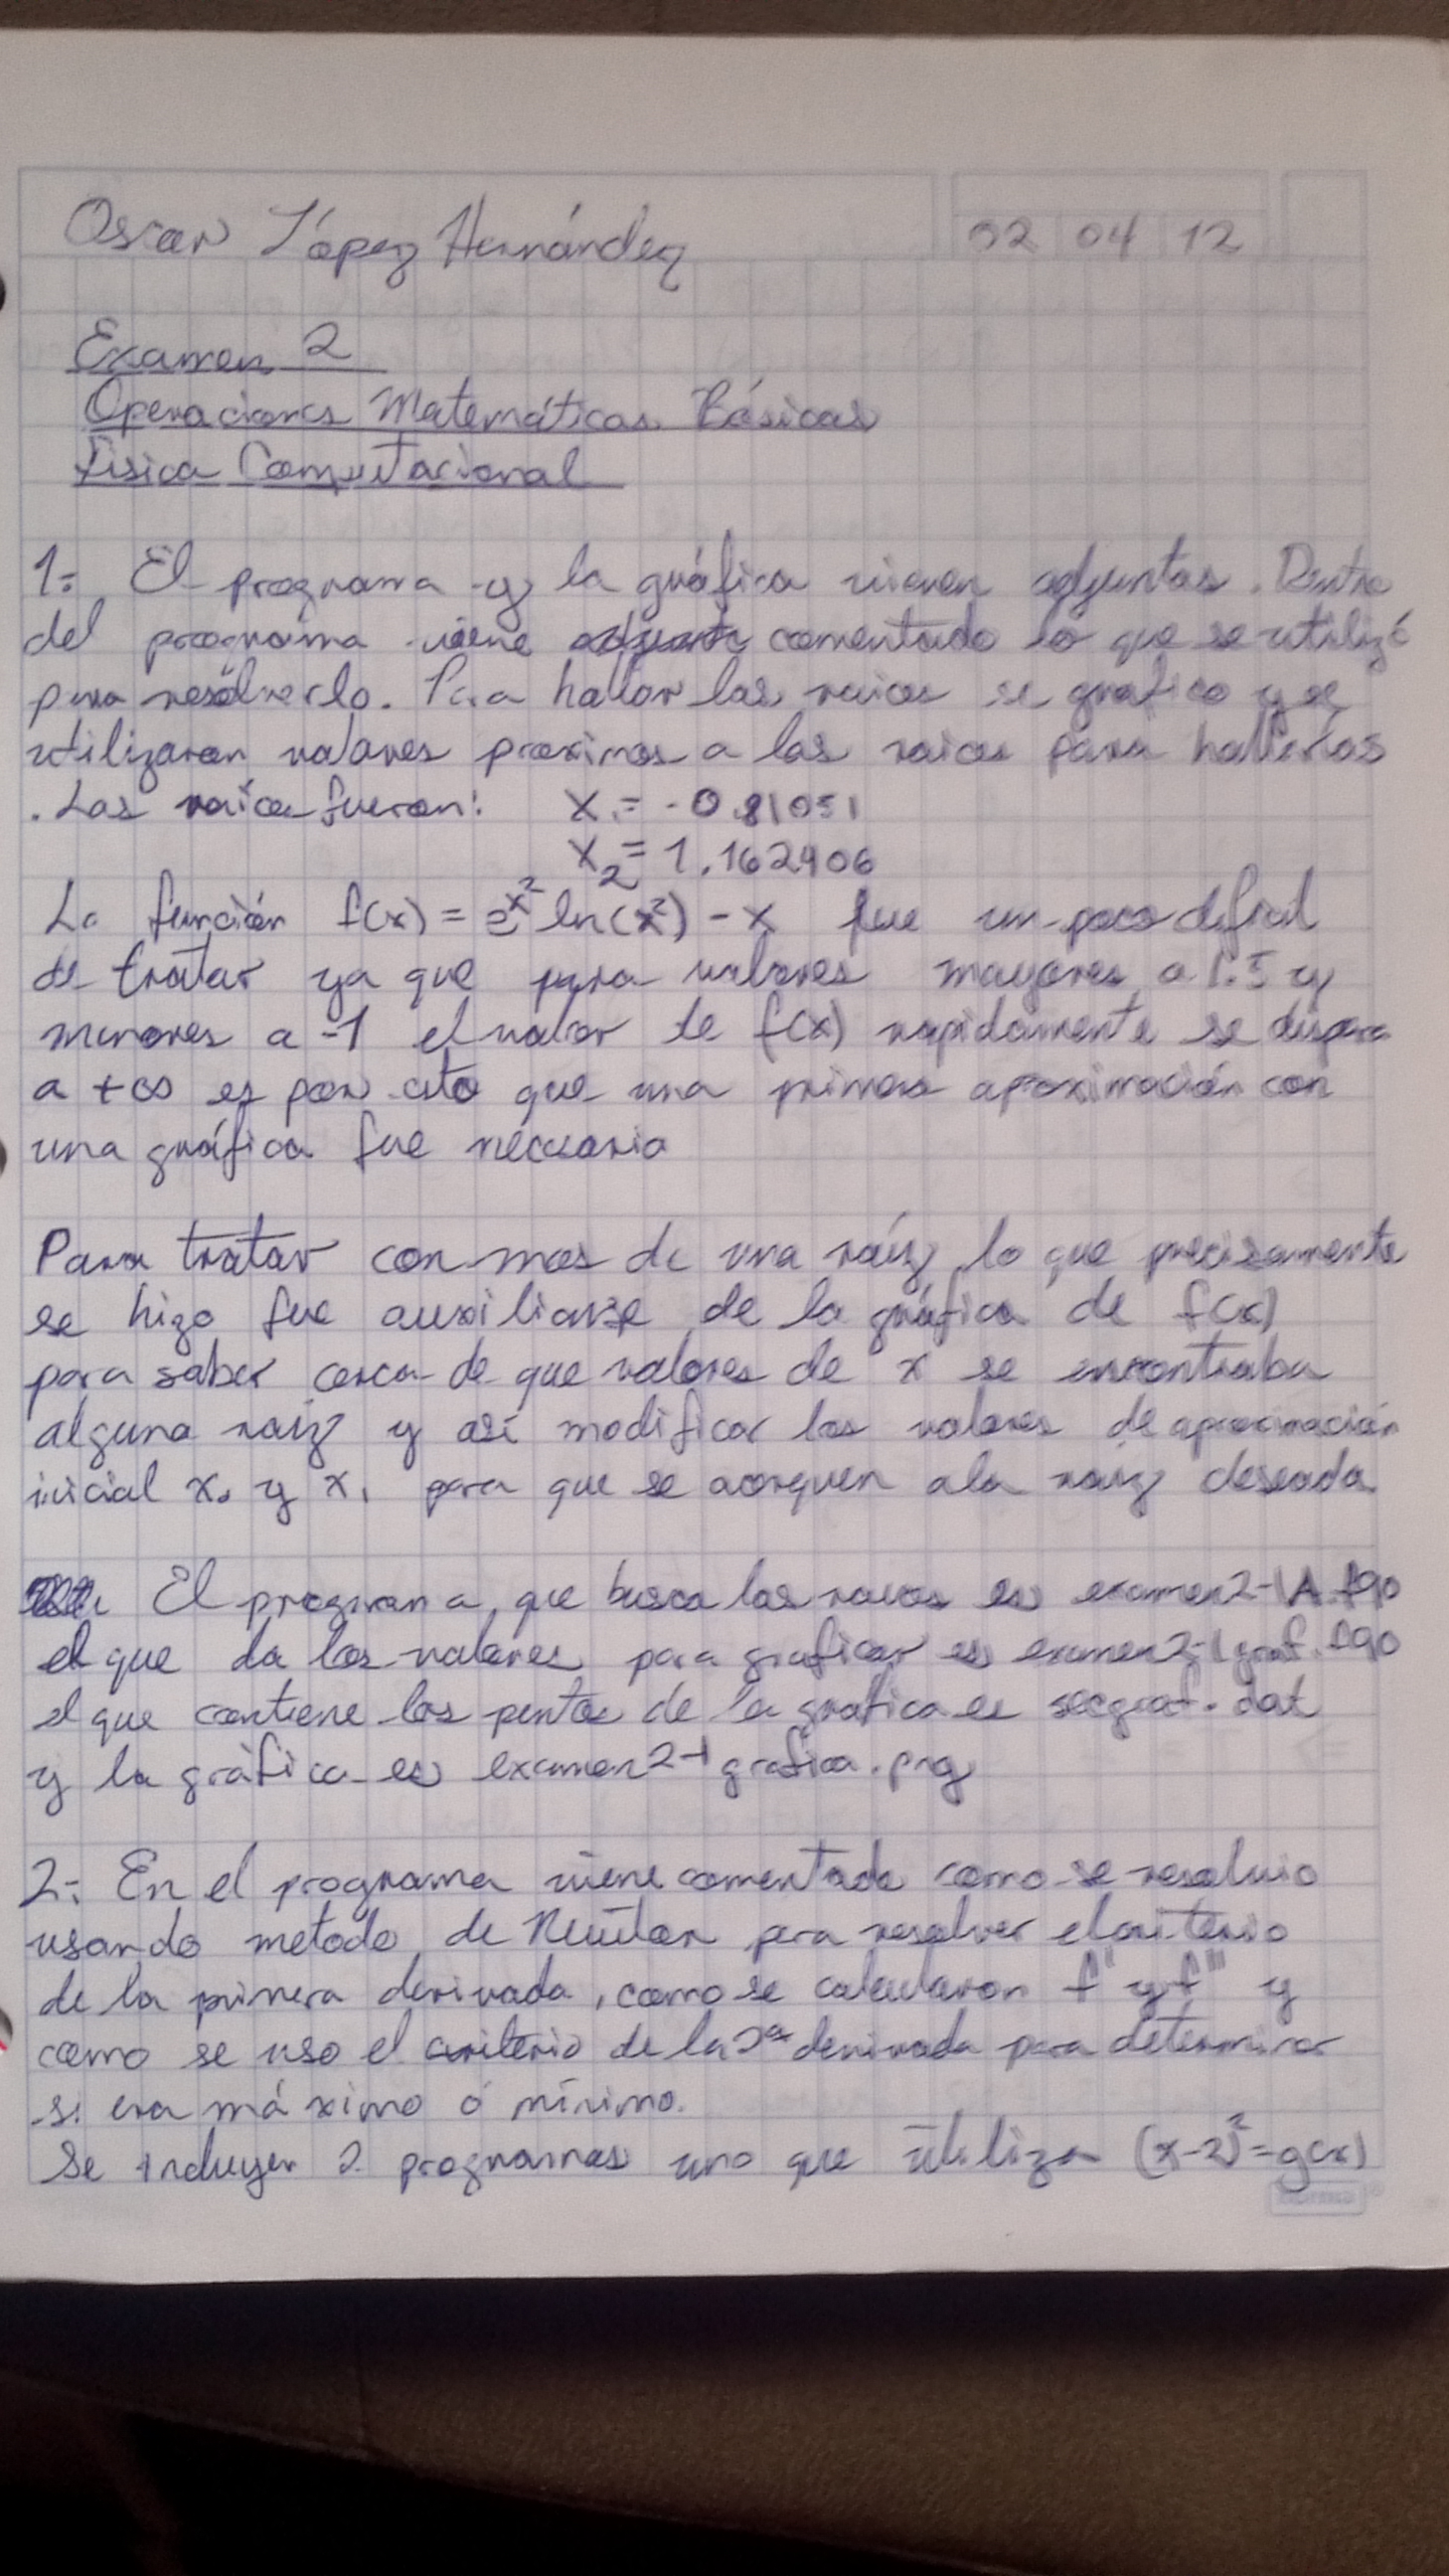 Oscar López Hernández
02 04 12
Examen 2
Operaciones Matemáticas Básicas
Física Computacional
1: El programa y la gráfica vienen adjuntas. Dentro
del programa viene comentado lo que se utilizó
para resolverlo. Para hallar las raices se grafico y se
utilizaron valores proximos a las raices para hallarlas
. Las raíces fueron: X₁ = -0.81051
X₂ = 1.162406
La función f(x) = e^x² ln(x²) - x fue un poco dificil
de tratar ya que para valores mayores a 1.5 y
menores a -1 el valor de f(x) rapidamente se dispara
a +∞ es por esto que una primera aproximación con
una gráfica fue necesaria
Para tratar con mas de una raíz lo que precisamente
se hizo fue auxiliarse de la gráfica de f(x)
para saber cerca de que valores de x se encontraba
alguna raiz y así modificar los valores de aproximación
inicial x₀ y x₁ para que se acerquen a la raiz deseada
El programa que busca las raices es examen2-1A.f90
el que da los valores para graficar es examen2-1graf.f90
el que contiene los puntos de la grafica es secgraf.dat
y la gráfica es examen2-1grafica.png
2: En el programa viene comentado como se resolvio
usando metodo de Newton para resolver el criterio
de la primera derivada, como se calcularon f'' y f''' y
como se uso el criterio de la 2ª derivada para determinar
si era máximo ó mínimo.
Se incluyen 2 programas uno que utiliza (x-2)²=g(x)